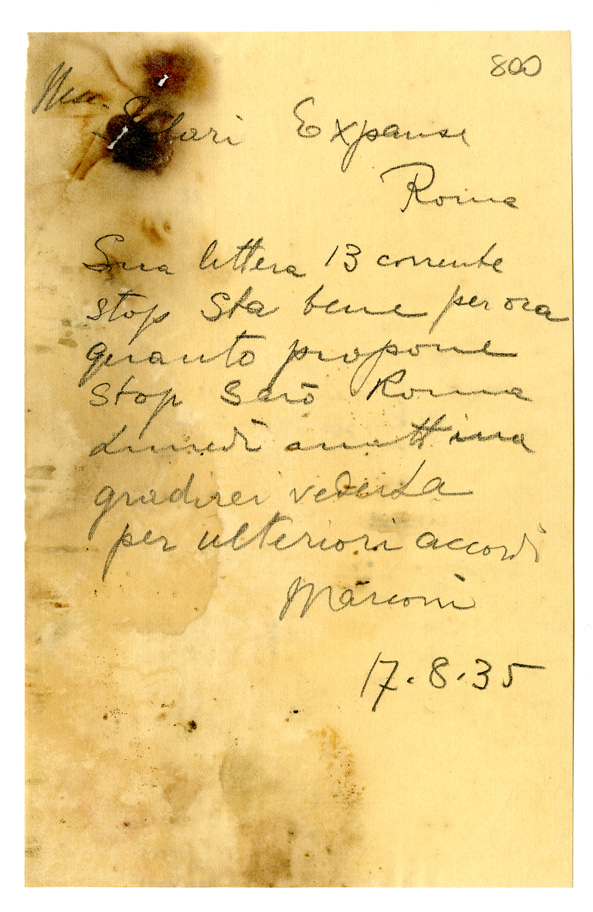 800
Expanse
Roma
Sua lettera 13 corrente
stop Sta bene per ora
quanto propone
stop Sarò Roma
Lunedì mattina
gradirei vederLa
per ulteriori accordi
Marconi
17.8.35